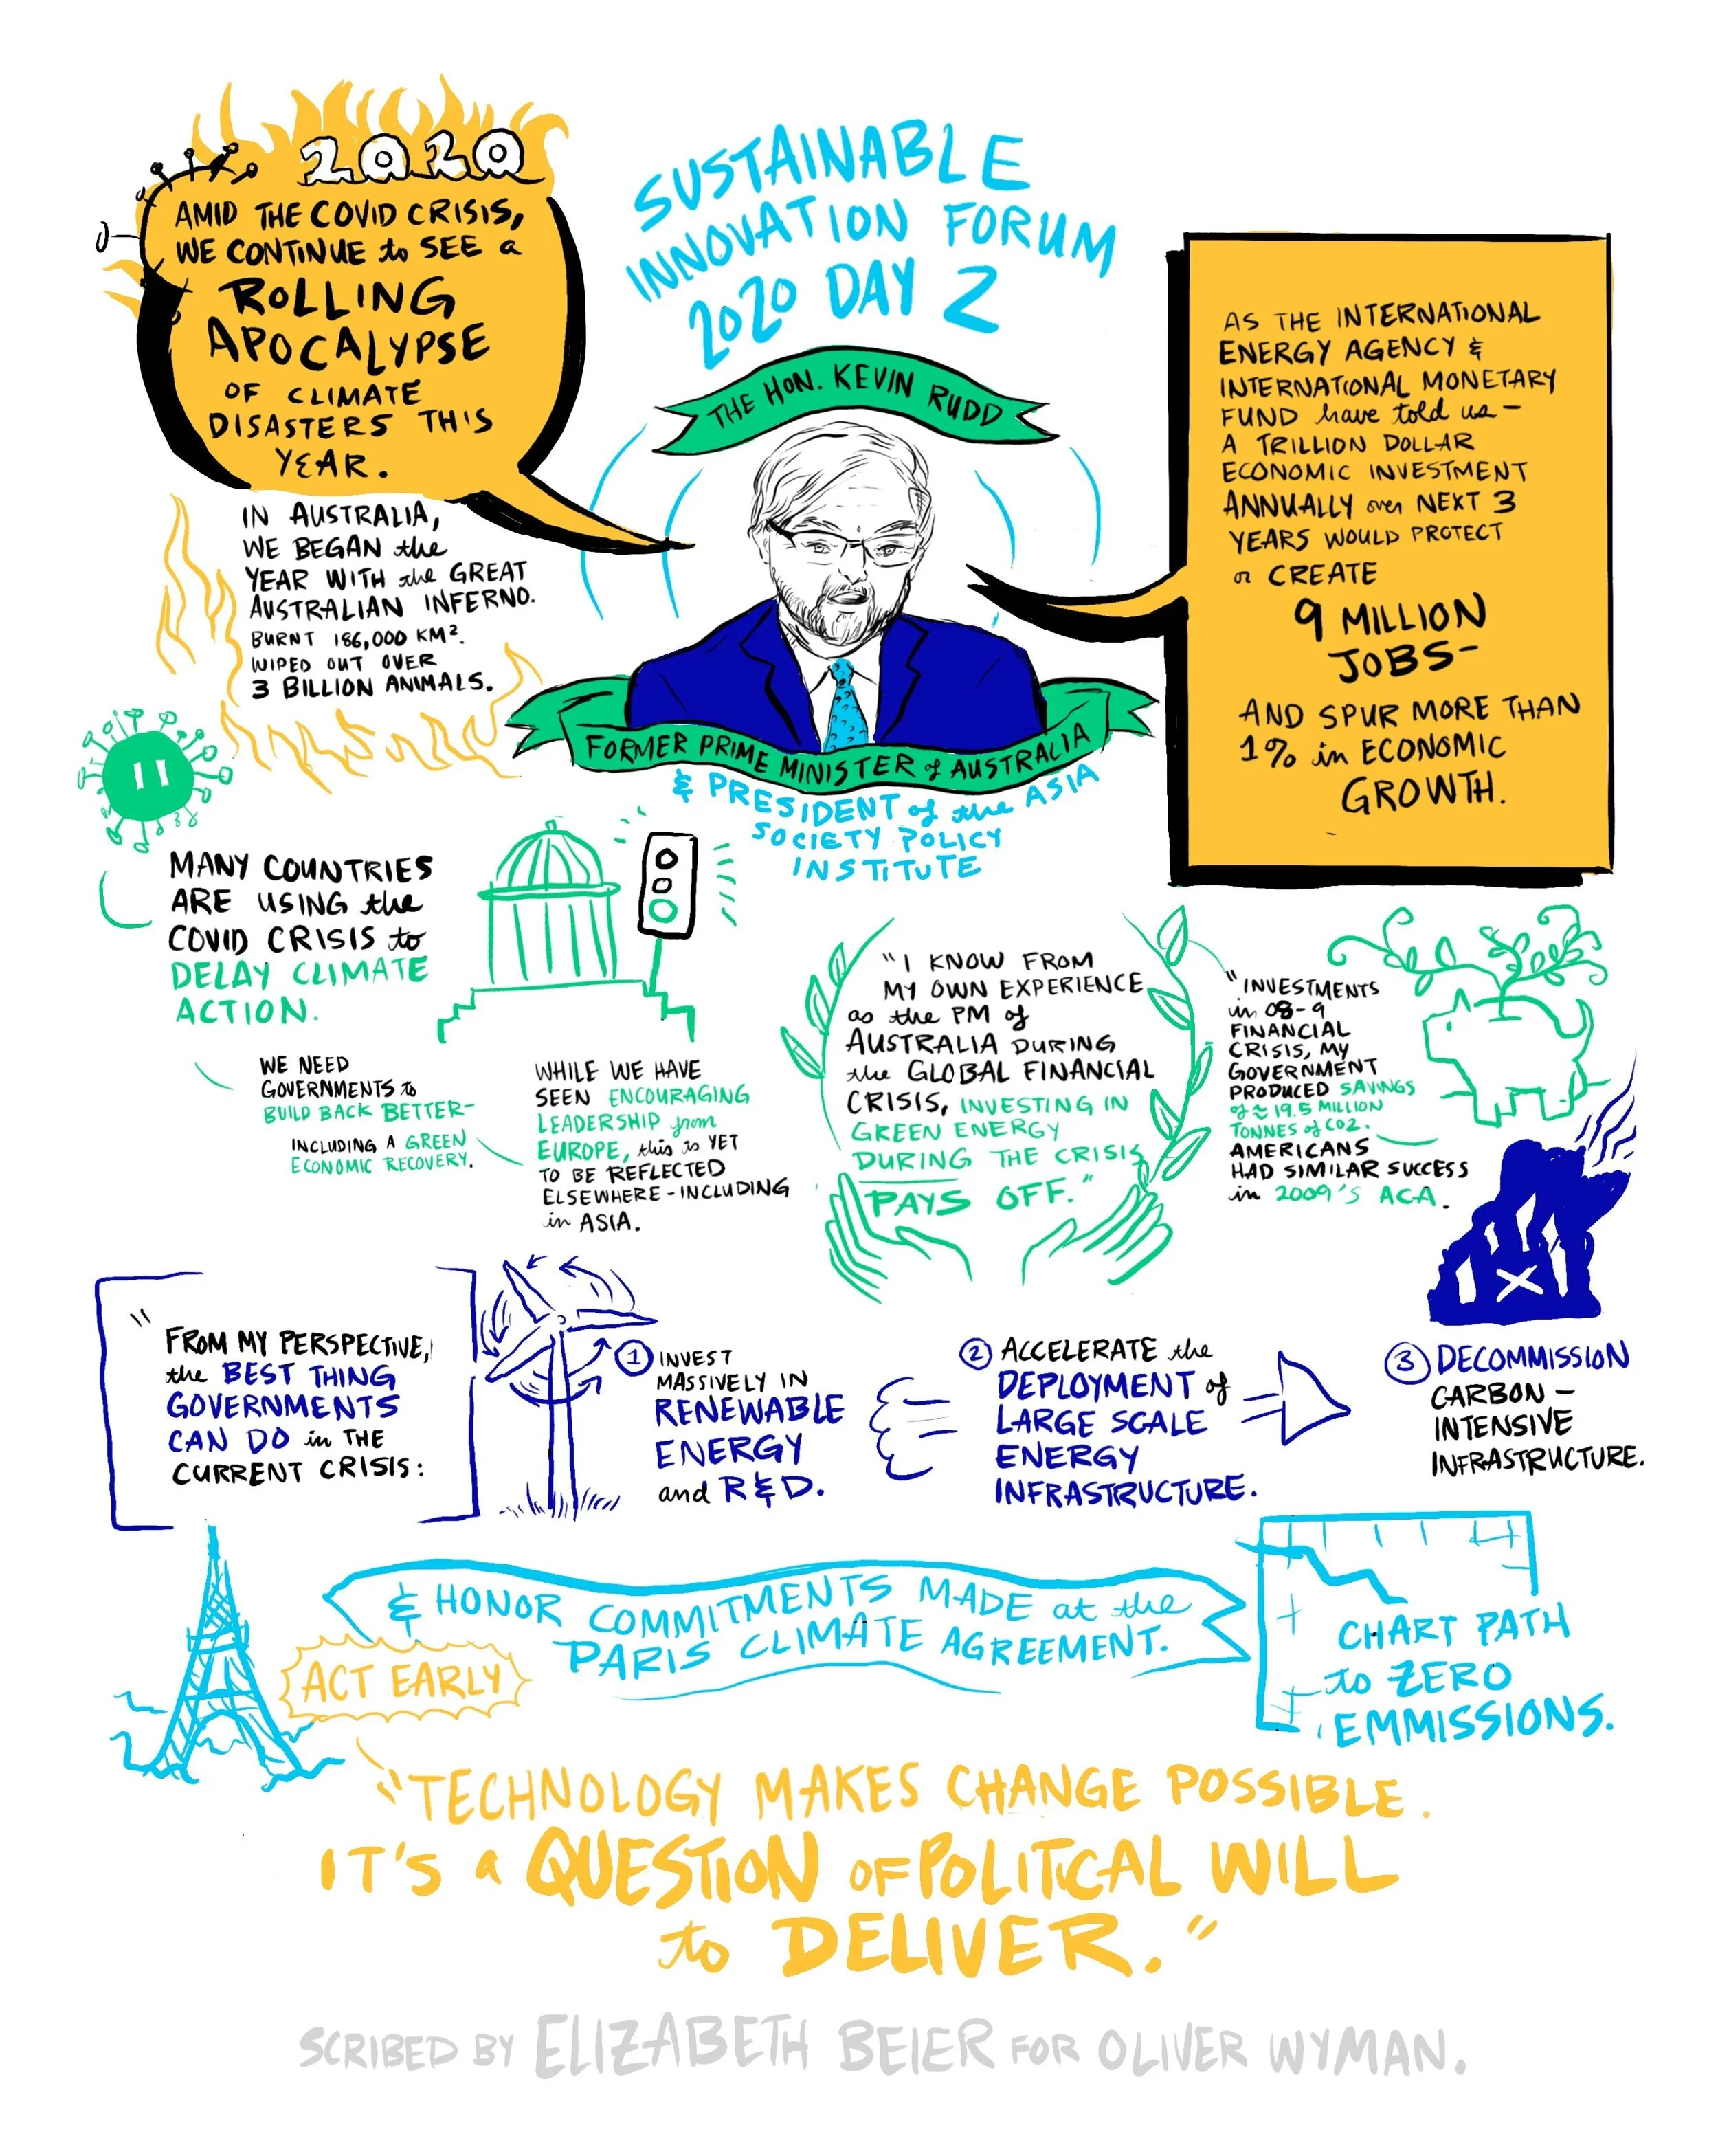 2020
AMID THE COVID CRISIS,
WE CONTINUE to SEE a
ROLLING
APOCALYPSE
OF CLIMATE
DISASTERS THIS
YEAR.
SUSTAINABLE
INNOVATION FORUM
2020 DAY 2
THE HON. KEVIN RUDD
FORMER PRIME MINISTER of AUSTRALIA
& PRESIDENT of the ASIA
SOCIETY POLICY
INSTITUTE
AS THE INTERNATIONAL
ENERGY AGENCY &
INTERNATIONAL MONETARY
FUND have told us -
A TRILLION DOLLAR
ECONOMIC INVESTMENT
ANNUALLY over NEXT 3
YEARS WOULD PROTECT
or CREATE
9 MILLION
JOBS-
AND SPUR MORE THAN
1% in ECONOMIC
GROWTH.
IN AUSTRALIA,
WE BEGAN the
YEAR WITH the GREAT
AUSTRALIAN INFERNO.
BURNT 186,000 KM².
WIPED OUT OVER
3 BILLION ANIMALS.
MANY COUNTRIES
ARE USING the
COVID CRISIS to
DELAY CLIMATE
ACTION.
WE NEED
GOVERNMENTS to
BUILD BACK BETTER-
INCLUDING A GREEN
ECONOMIC RECOVERY.
WHILE WE HAVE
SEEN ENCOURAGING
LEADERSHIP from
EUROPE, this is YET
TO BE REFLECTED
ELSEWHERE - INCLUDING
in ASIA.
"I KNOW FROM
MY OWN EXPERIENCE
as the PM of
AUSTRALIA DURING
the GLOBAL FINANCIAL
CRISIS, INVESTING IN
GREEN ENERGY
DURING THE CRISIS
PAYS OFF."
"INVESTMENTS
in 08-9
FINANCIAL
CRISIS, MY
GOVERNMENT
PRODUCED SAVINGS
of ≈ 19.5 MILLION
TONNES of CO2.
AMERICANS
HAD SIMILAR SUCCESS
in 2009'S ACA.
"FROM MY PERSPECTIVE,
the BEST THING
GOVERNMENTS
CAN DO in THE
CURRENT CRISIS:
1 INVEST
MASSIVELY IN
RENEWABLE
ENERGY
and R&D.
2 ACCELERATE the
DEPLOYMENT of
LARGE SCALE
ENERGY
INFRASTRUCTURE.
3 DECOMMISSION
CARBON -
INTENSIVE
INFRASTRUCTURE.
& HONOR COMMITMENTS MADE at the
PARIS CLIMATE AGREEMENT.
ACT EARLY
CHART PATH
to ZERO
EMMISSIONS.
"TECHNOLOGY MAKES CHANGE POSSIBLE.
IT'S a QUESTION OF POLITICAL WILL
to DELIVER."
SCRIBED BY ELIZABETH BEIER FOR OLIVER WYMAN.